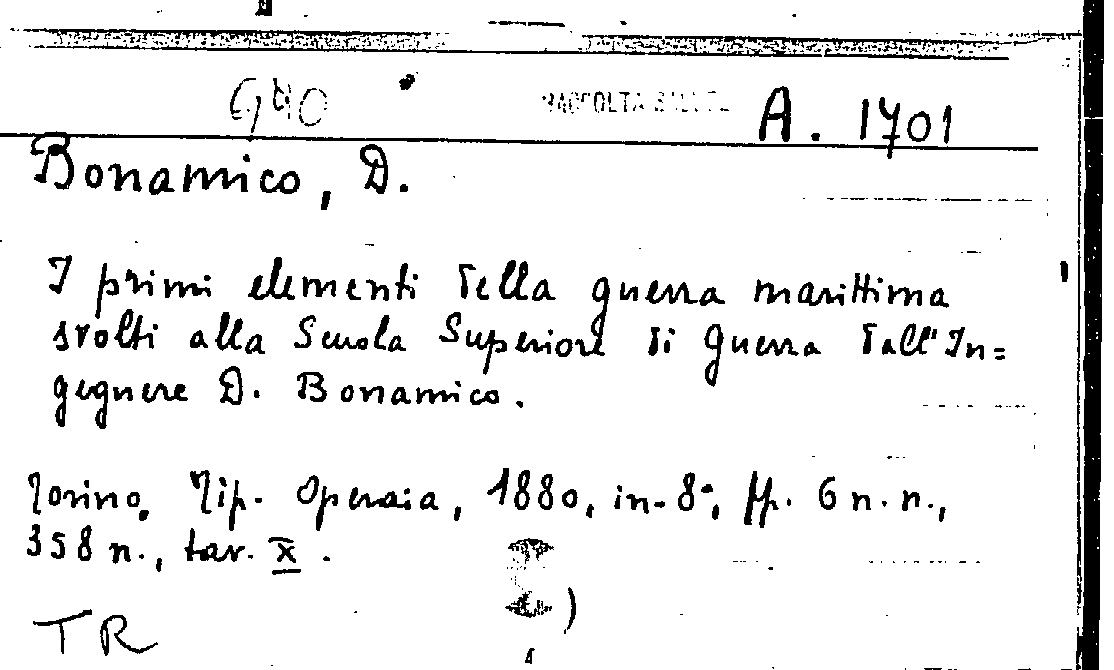 RACCOLTA A. 1701
Bonamico, D.
I primi elementi della guerra marittima
svolti alla Scuola Superiore di Guerra dall'In=
gegnere D. Bonamico.
Torino, Tip. Operaia, 1880, in-8°, pp. 6 n. n.,
358 n., tav. X.
TR